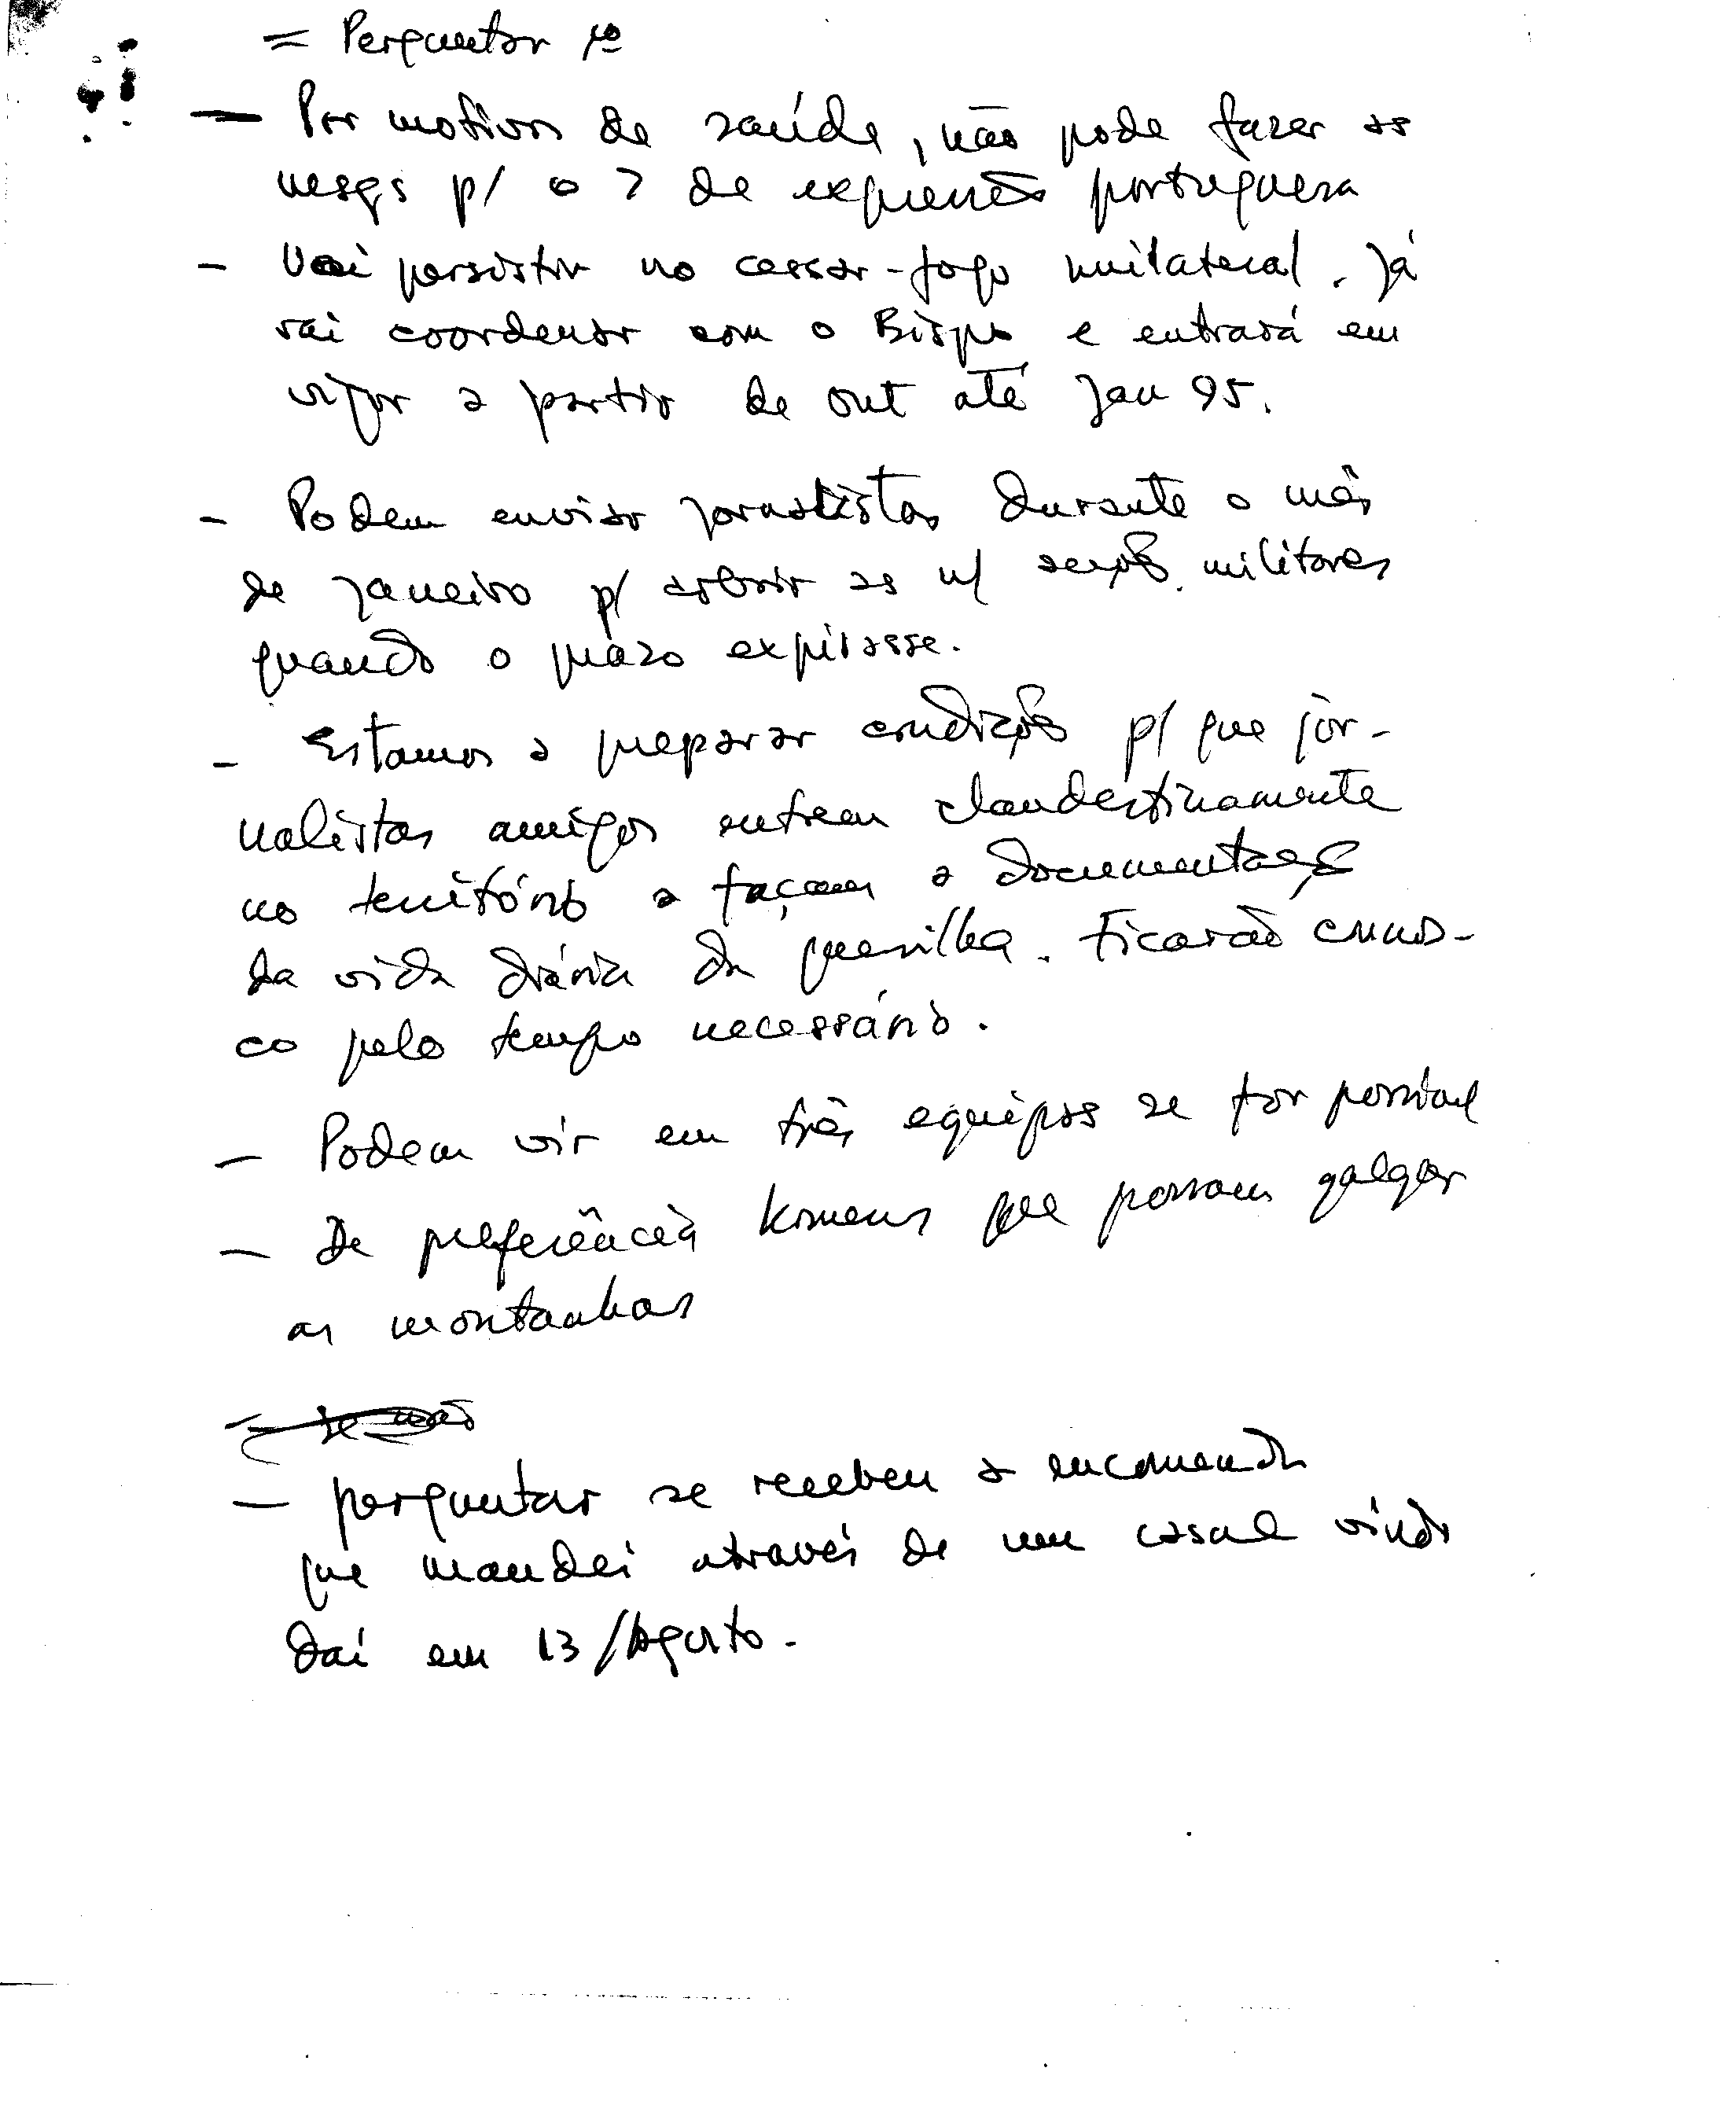 = Perguntar
— Por motivos de saúde, não pode fazer as
mesgs p/ o 7 de expressão portuguesa
- Vai persistir no cessar-fogo unilateral. Já
vai coordenar com o Bispo e entrará em
vigor a partir de out até Jan 95.
- Podem enviar jornalistas durante o mês
de Janeiro p/ cobrir as n/ acções militares
quando o prazo expirasse.
- Estamos a preparar condições p/ que jor-
nalistas amigos entrem clandestinamente
no território e façam a documentação
da vida diária da guerrilha. Ficarão connos-
co pelo tempo necessário.
- Podem vir em três equipas se for possível
- De preferência homens que possam galgar
as montanhas
- se não
- perguntar se recebeu a encomenda
que mandei através de um casal vindo
daí em 13/Agosto.